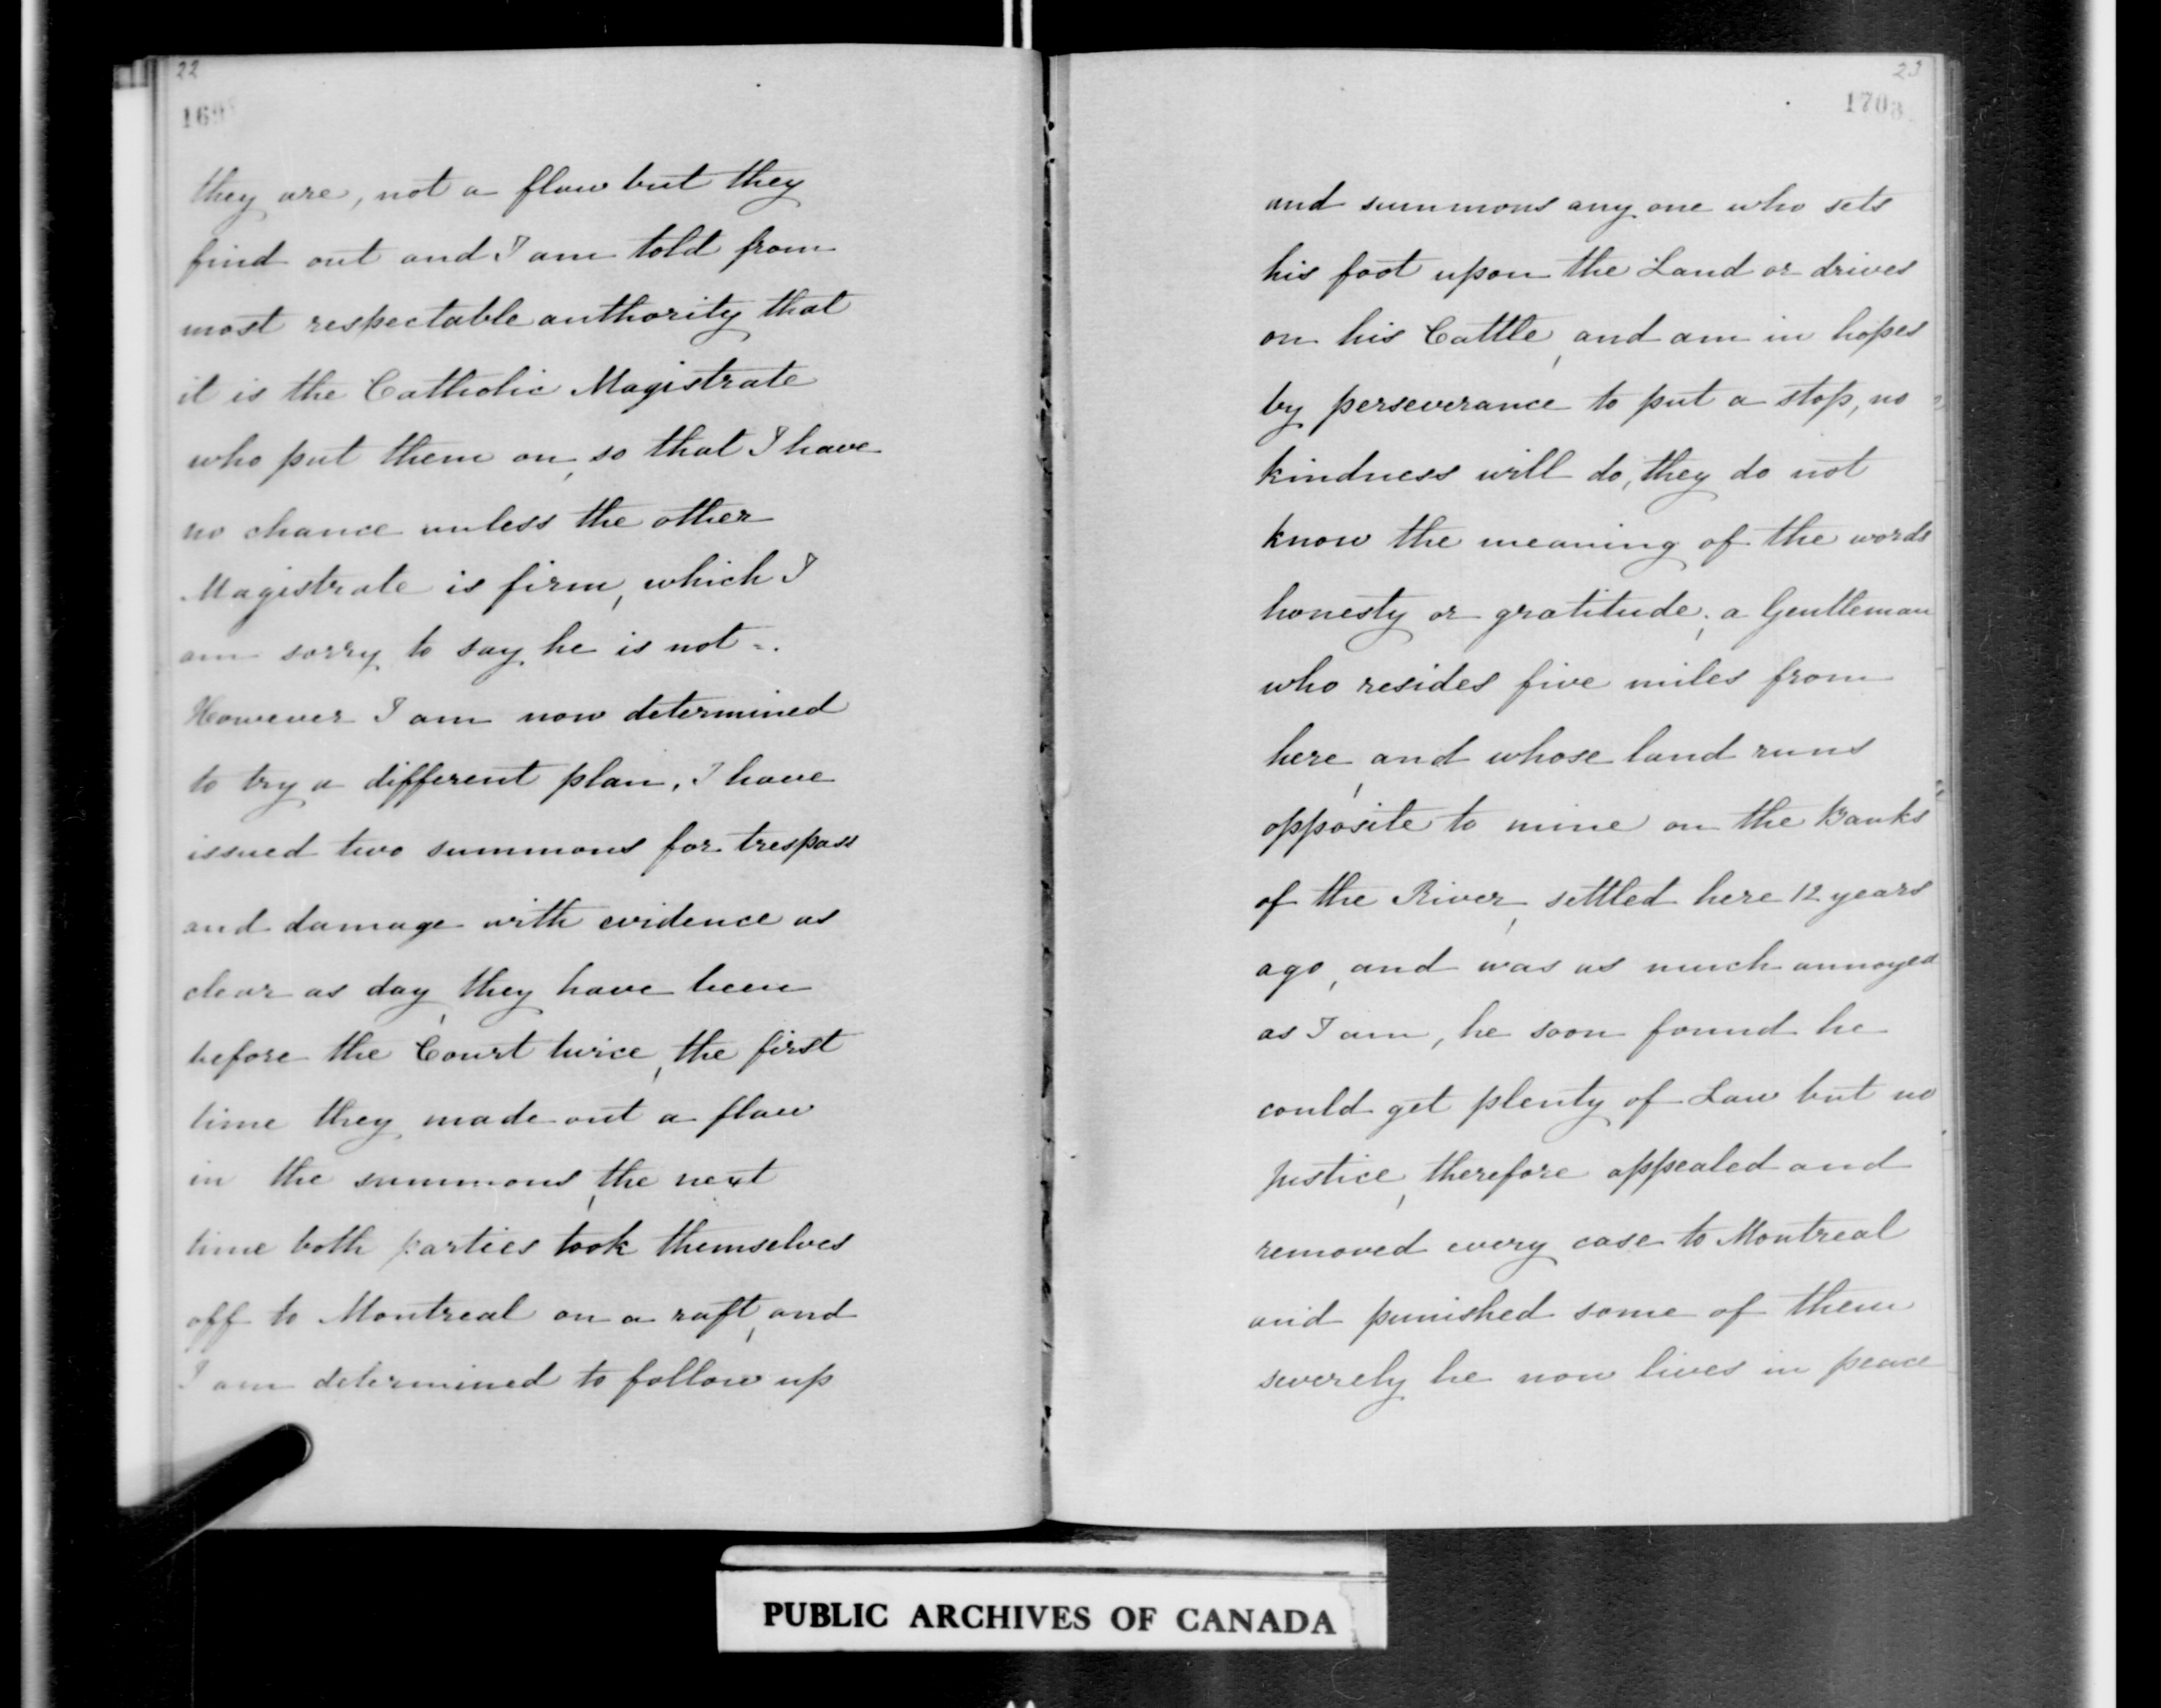 22
they are, not a flaw but they
find out and I am told from
most respectable authority that
it is the Catholic Magistrate
who put them on, so that I have
no chance unless the other
Magistrate is firm, which I
am sorry to say he is not -.
However I am now determined
to try a different plan. I have
issued two summons for trespass
and damage with evidence as
clear as day, they have been
before the Court twice, the first
time they made out a flaw
in the summons, the next
time both parties took themselves
off to Montreal on a raft, and
I am determined to follow up
23
1703
and summons any one who sets
his foot upon the Land or drives
on his Cattle, and am in hopes
by perseverance to put a stop, no
kindness will do, they do not
know the meaning of the words
honesty or gratitude; a Gentleman
who resides five miles from
here, and whose land runs
opposite to mine on the Banks
of the River, settled here 12 years
ago, and was as much annoyed
as I am, he soon found he
could get plenty of Law but no
justice, therefore appealed and
removed every case to Montreal
and punished some of them
severely he now lives in peace
PUBLIC ARCHIVES OF CANADA